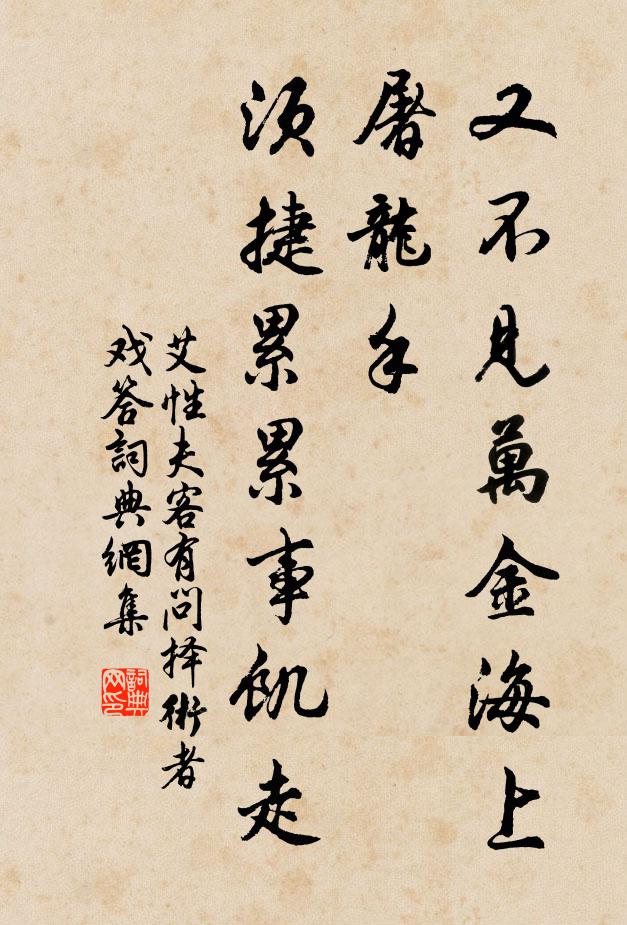 又不見萬金海上
屠龍手
須捷累累事飢走
艾性夫客有问择術者
戏答詞典網集
詞典
网印